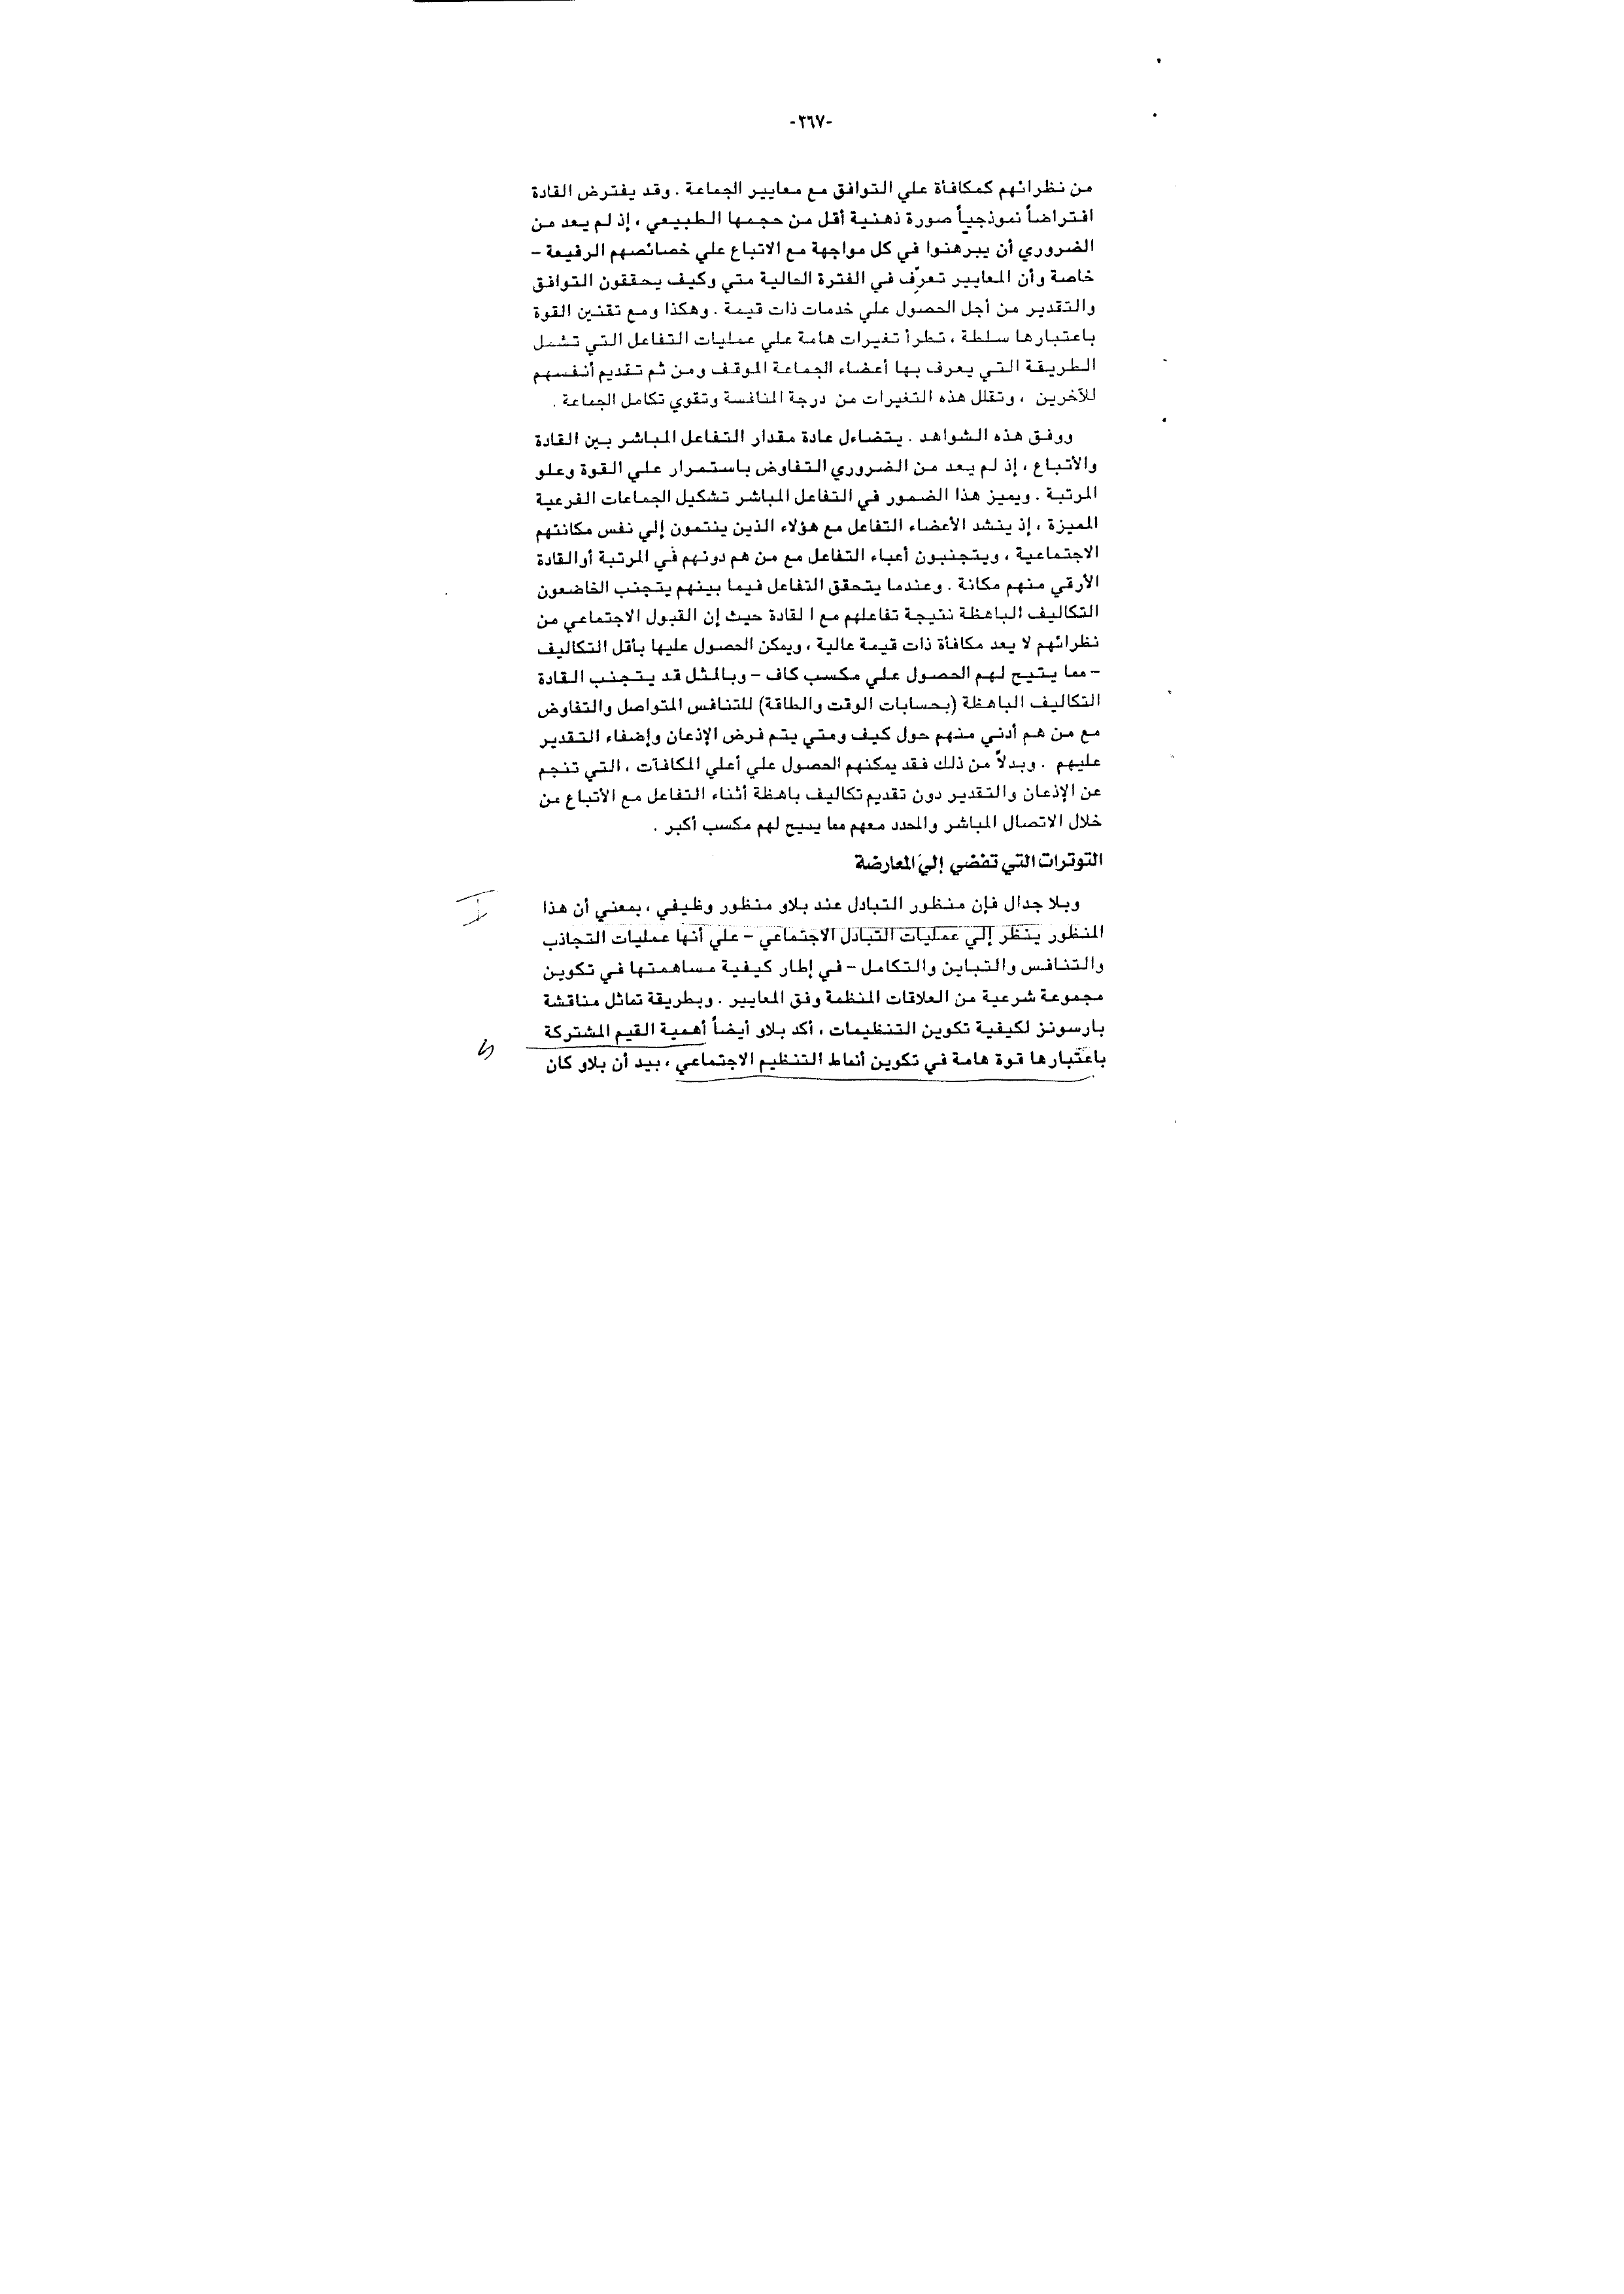 -٣٦٧-
من نظرائهم كمكافأة علي التوافق مع معايير الجماعة . وقد يفترض القادة
افتراضاً نموذجياً صورة ذهنية أقل من حجمها الطبيعي ، إذ لم يعد من
الضروري أن يبرهنوا في كل مواجهة مع الاتباع علي خصائصهم الرفيعة –
خاصة وأن المعايير تعرِّف في الفترة الحالية متي وكيف يحققون التوافق
والتقدير من أجل الحصول علي خدمات ذات قيمة . وهكذا ومع تقنين القوة
باعتبارها سلطة ، تطرأ تغيرات هامة علي عمليات التفاعل التي تشمل
الطريقة التي يعرف بها أعضاء الجماعة الموقف ومن ثم تقديم أنفسهم
للآخرين ، وتقلل هذه التغيرات من درجة المنافسة وتقوي تكامل الجماعة .
ووفق هذه الشواهد . يتضاءل عادة مقدار التفاعل المباشر بين القادة
والأتباع ، إذ لم يعد من الضروري التفاوض باستمرار علي القوة وعلو
المرتبة . ويميز هذا الضمور في التفاعل المباشر تشكيل الجماعات الفرعية
المميزة ، إذ ينشد الأعضاء التفاعل مع هؤلاء الذين ينتمون إلي نفس مكانتهم
الاجتماعية ، ويتجنبون أعباء التفاعل مع من هم دونهم في المرتبة أوالقادة
الأرقي منهم مكانة . وعندما يتحقق التفاعل فيما بينهم يتجنب الخاضعون
التكاليف الباهظة نتيجة تفاعلهم مع ا لقادة حيث إن القبول الاجتماعي من
نظرائهم لا يعد مكافأة ذات قيمة عالية ، ويمكن الحصول عليها بأقل التكاليف
– مما يتيح لهم الحصول علي مكسب كاف – وبالمثل قد يتجنب القادة
التكاليف الباهظة (بحسابات الوقت والطاقة) للتنافس المتواصل والتفاوض
مع من هم أدني منهم حول كيف ومتي يتم فرض الإذعان وإضفاء التقدير
عليهم . وبدلاً من ذلك فقد يمكنهم الحصول علي أعلي المكافآت ، التي تنجم
عن الإذعان والتقدير دون تقديم تكاليف باهظة أثناء التفاعل مع الأتباع من
خلال الاتصال المباشر والمحدد معهم مما يبيح لهم مكسب أكبر .
التوترات التي تفضي إلي المعارضة
وبلا جدال فإن منظور التبادل عند بلاو منظور وظيفي ، بمعني أن هذا
المنظور ينظر إلي عمليات التبادل الاجتماعي – علي أنها عمليات التجاذب
والتنافس والتباين والتكامل – في إطار كيفية مساهمتها في تكوين
مجموعة شرعية من العلاقات المنظمة وفق المعايير . وبطريقة تماثل مناقشة
بارسونز لكيفية تكوين التنظيمات ، أكد بلاو أيضاً أهمية القيم المشتركة
باعتبارها قوة هامة في تكوين أنماط التنظيم الاجتماعي ، بيد أن بلاو كان